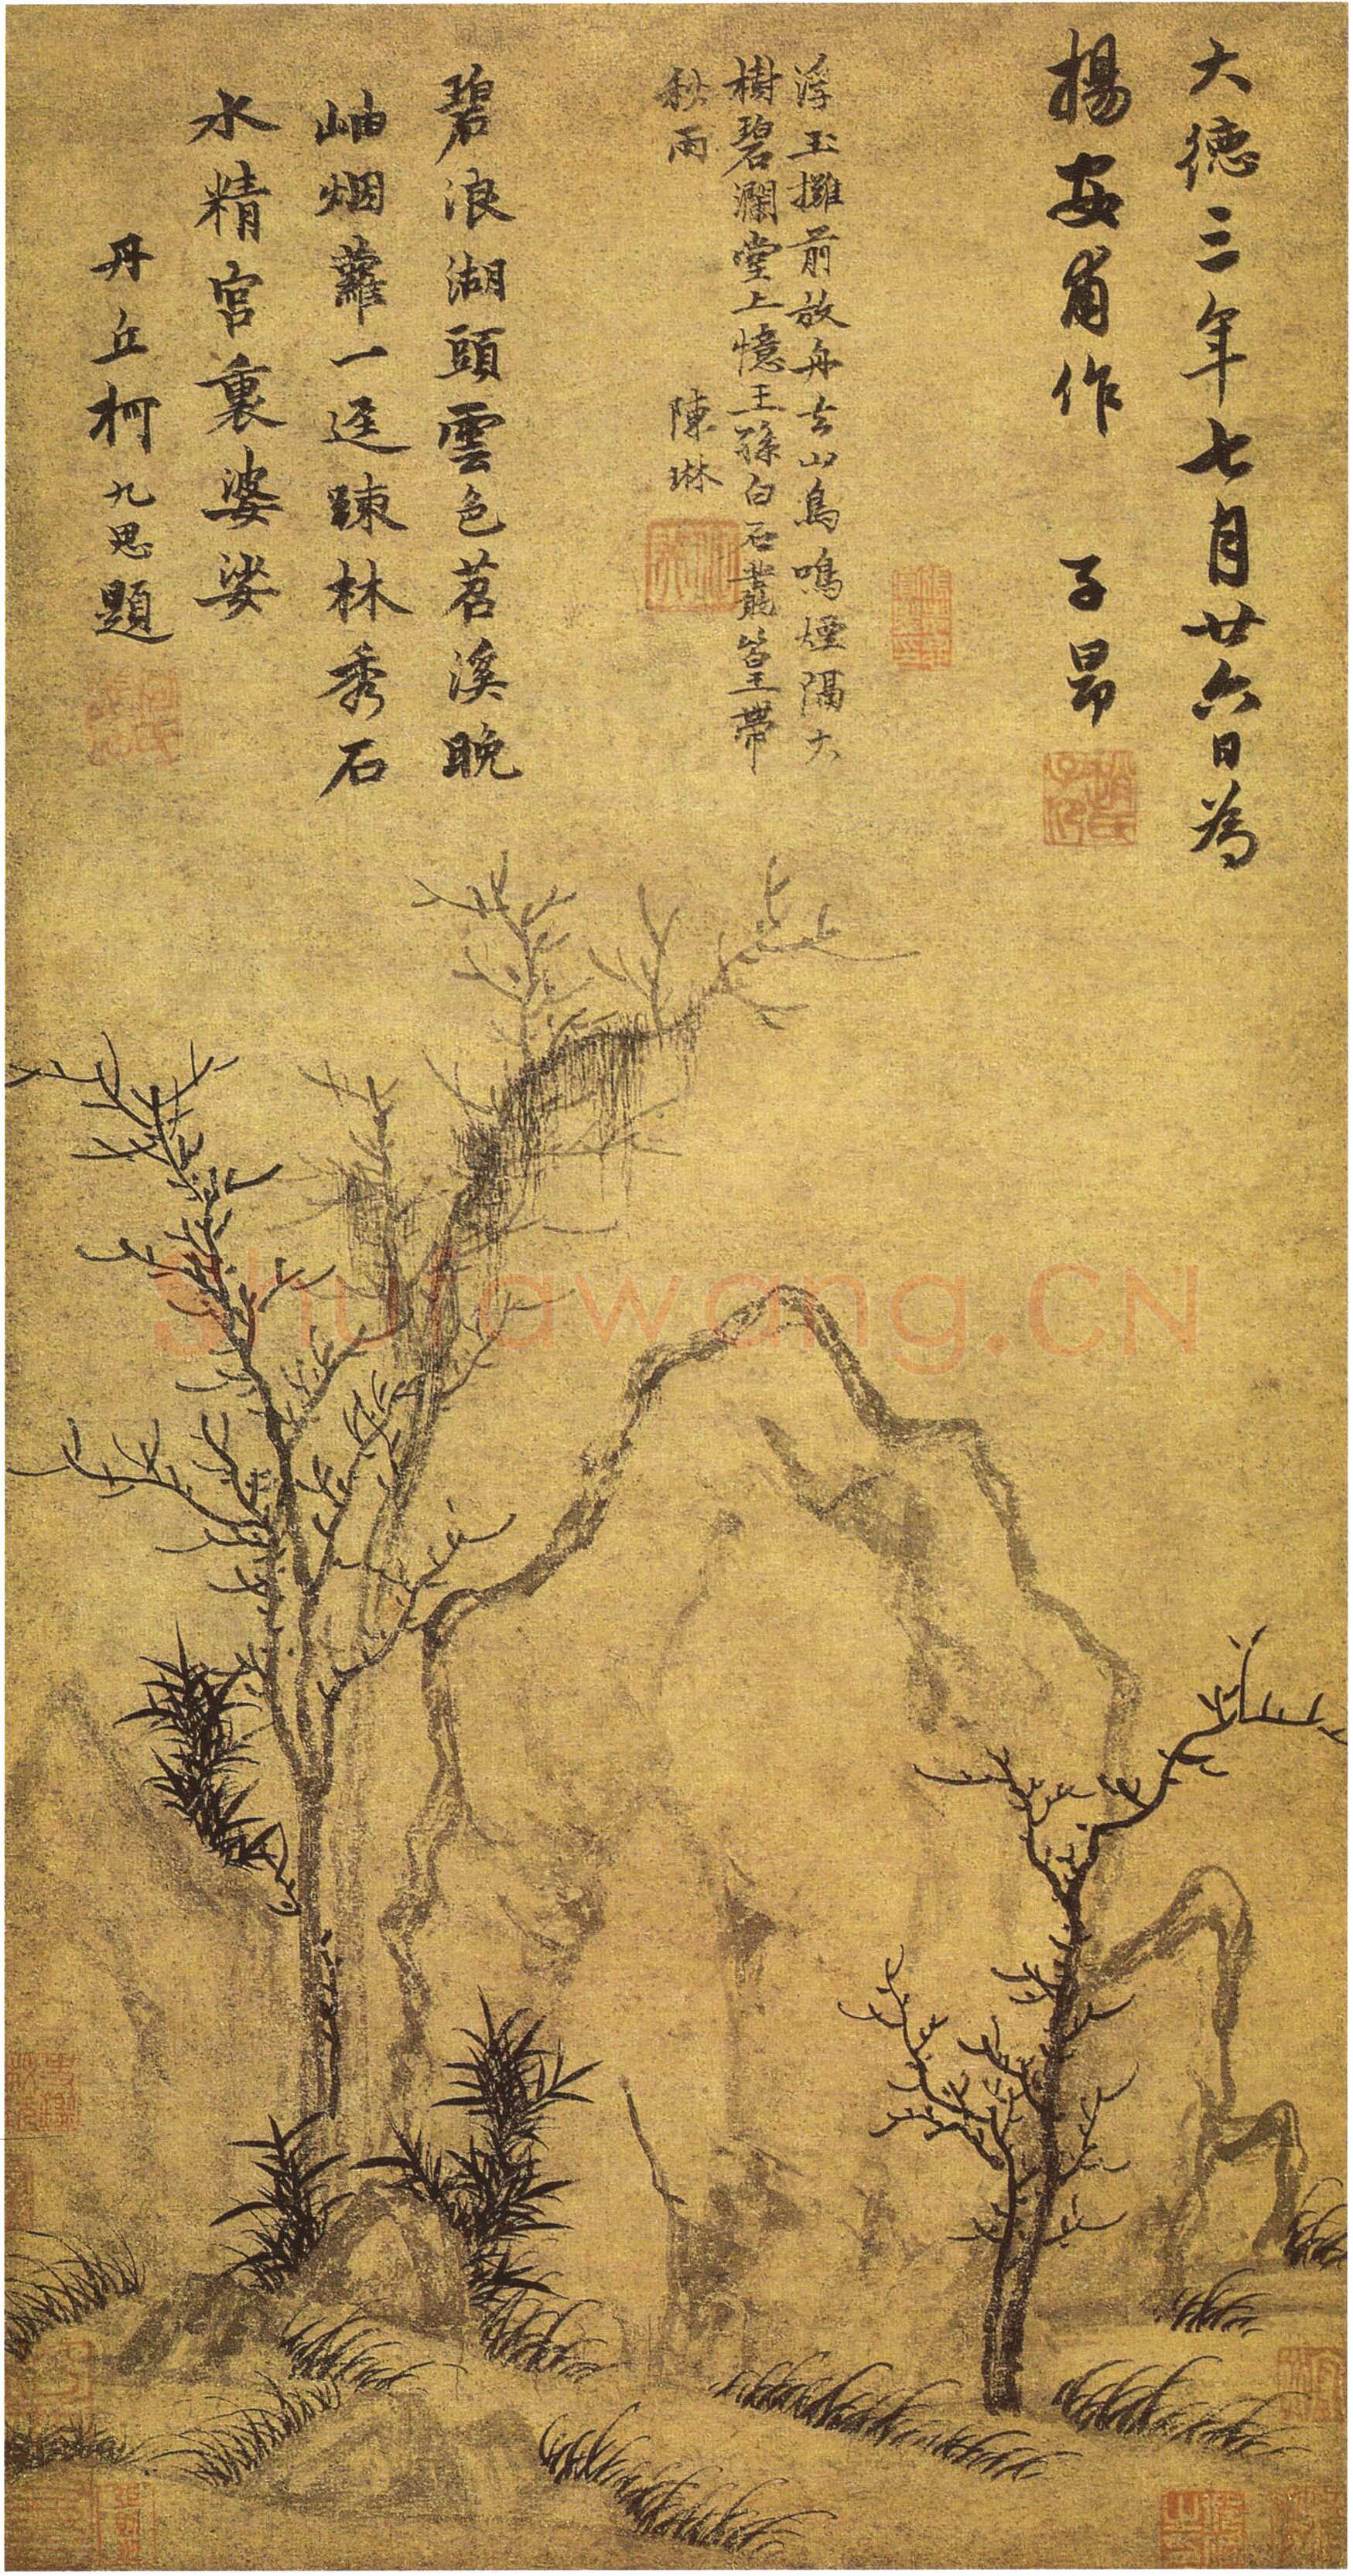 大德三年七月廿六日為
楊安甫作 子昂
浮玉攤前放舟去山鳥鳴煙隔大
樹碧瀾堂上憶王孫白石叢篁帶
秋雨 陳琳
碧浪湖頭雲色茗溪晚
岫烟蘿一逕踈林秀石
水精宮裏婆娑
丹丘柯九思題
Shufawang.CN